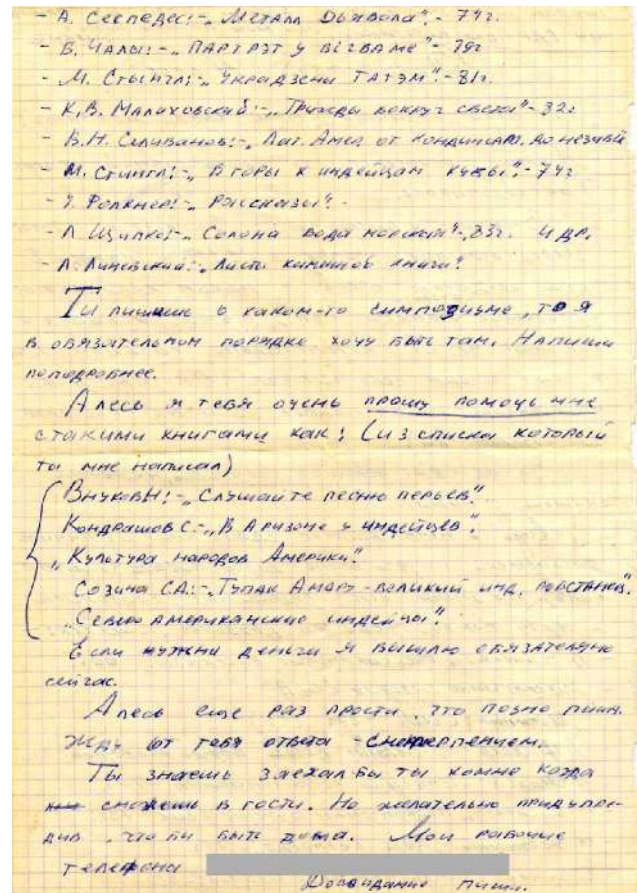 - А. Сеспедес:-„Металл Дьявола".- 74г.
- Б. Чалы:-„ПАРТРЭТ У ВІГВАМЕ"- 79г
- М. Стынгл:-„Украдзены ТАТЭМ".- 81г.
- К.В. Малаховский:-„Трижды вокруг света"- 82г
- В.Н. Селиванов:-„Лат. Амер. от
- М. Стингл:-„В горы к индейцам кубы".- 74г
- У. Фолкнер:-„Рассказы".-
- Л Щипко:-„Солона вода морская"-83г. и др.
- Л. Линевский:„Листы каменной книги".
Ты пишешь о каком-то симпозиуме, то я
в обязательном порядке хочу быть там. Напиши
поподробнее.
Алесь я тебя очень прошу помочь мне
стакими книгами как: (из списка который
ты мне написал)
ВнуковН:-„Слушайте песню перьев".
Кондрашов С:-„В Аризоне у индейцев".
„Культура народов Америки".
Созина СА:-„Тупак Амару-великий инд. повстанец".
„Северо американские индейцы".
Если нужны деньги я вышлю обязательно
сейчас.
Алесь еще раз прости, что позно пишу.
Жду от тебя ответа - снетерпением.
Ты знаешь заехал бы ты комне когда
сможешь в гости. Но желательно придупре-
див, что бы быть дома. Мои рабочие
телефона
Досвидание пиши.